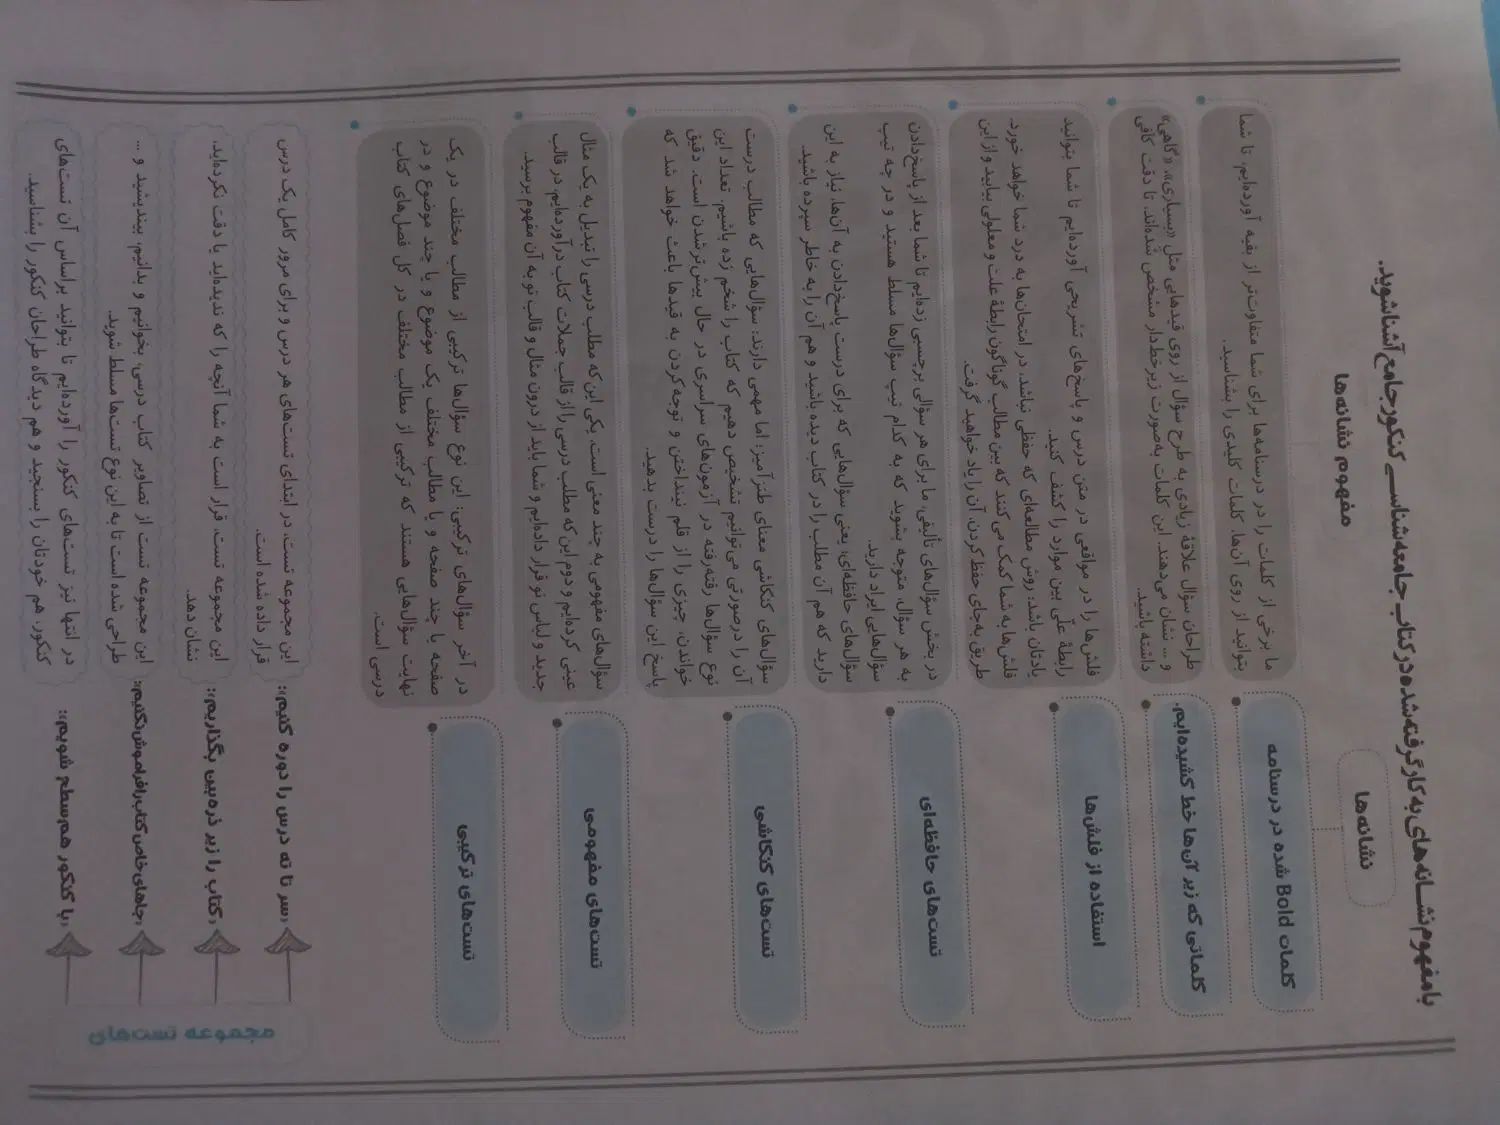 با مفهوم نشانه‌های به کار گرفته شده در کتاب جامعه‌شناسی کنکور جامع آشنا شوید.
نشانه‌ها
مفهوم نشانه‌ها
کلمات Bold شده در درسنامه
ما برخی از کلمات را در درسنامه‌ها برای شما متفاوت‌تر از بقیه آورده‌ایم، تا شما
بتوانید از روی آن‌ها کلمات کلیدی را بشناسید.
کلماتی که زیر آن‌ها خط کشیده‌ایم.
طراحان سؤال علاقهٔ زیادی به طرح سؤال از روی قیدهایی مثل «بسیاری»، «گاهی»
و ... نشان می‌دهند. این کلمات به‌صورت زیرخط‌دار مشخص شده‌اند، تا دقت کافی
داشته باشید.
استفاده از فلش‌ها
فلش‌ها را در مواقعی در متن درس و پاسخ‌های تشریحی آورده‌ایم تا شما بتوانید
رابطهٔ علّی بین موارد را کشف کنید.
یادتان باشد: روش مطالعه‌ای که حفظی نباشد، در امتحان‌ها به درد شما خواهد خورد.
فلش‌ها به شما کمک می‌کنند که بین مطالب گوناگون رابطهٔ علت و معلولی بیابید و از این
طریق به‌جای حفظ کردن، آن را یاد خواهید گرفت.
تست‌های حافظه‌ای
در بخش سؤال‌های تألیفی، ما برای هر سؤالی برچسبی زده‌ایم تا شما بعد از پاسخ‌دادن
به هر سؤال، متوجه بشوید که به کدام تیپ سؤال‌ها مسلط هستید و در چه تیپ
سؤال‌هایی ایراد دارید.
سؤال‌های حافظه‌ای، یعنی سؤال‌هایی که برای درست پاسخ‌دادن به آن‌ها، نیاز به این
دارید که هم آن مطلب را در کتاب دیده باشید و هم آن را به خاطر سپرده باشید.
تست‌های کنکاشی
سؤال‌های کنکاشی معنای طنزآمیز، اما مهمی دارند: سؤال‌هایی که مطالب درست
آن را درصورتی می‌توانیم تشخیص دهیم که کتاب را شخم زده باشیم. تعداد این
نوع سؤال‌ها رفته‌رفته در آزمون‌های سراسری در حال بیش‌تر‌شدن است. دقیق
خواندن، چیزی را از قلم نینداختن و توجه‌کردن به قیدها باعث خواهد شد که
پاسخ این سؤال‌ها را درست بدهید.
تست‌های مفهومی
سؤال‌های مفهومی به چند معنی است، یکی این‌که مطلب درسی را تبدیل به یک مثال
عینی کرده‌ایم و دوم این‌که مطلب درسی را از قالب جملات کتاب درآورده‌ایم، در قالب
جدید و لباس نو قرار داده‌ایم و شما باید از درون مثال و قالب نو به آن مفهوم برسید.
تست‌های ترکیبی
در آخر سؤال‌های ترکیبی: این نوع سؤال‌ها ترکیبی از مطالب مختلف در یک
صفحه یا چند صفحه و یا مطالب مختلف یک موضوع و یا چند موضوع و در
نهایت سؤال‌هایی هستند که ترکیبی از مطالب مختلف در کل فصل‌های کتاب
درسی است.
مجموعه تست‌های
«سر تا ته درس را دوره کنیم»:
این مجموعه تست، در ابتدای تست‌های هر درس و برای مرور کامل یک درس
قرار داده شده است.
«کتاب را زیر ذره‌بین بگذاریم»:
این مجموعه تست، قرار است به شما آنچه را که ندیده‌اید یا دقت نکرده‌اید،
نشان دهد.
«جاهای خاص کتاب را فراموش نکنیم»:
این مجموعه تست از تصاویر کتاب درسی، بخوانیم و بدانیم، بیندیشید و ...
طراحی شده است تا به این نوع تست‌ها مسلط شوید.
«با کنکور هم‌سطح شویم»:
در انتها نیز تست‌های کنکور را آورده‌ایم تا بتوانید براساس آن تست‌های
کنکور، هم خودتان را بسنجید و هم دیدگاه طراحان کنکور را بشناسید.